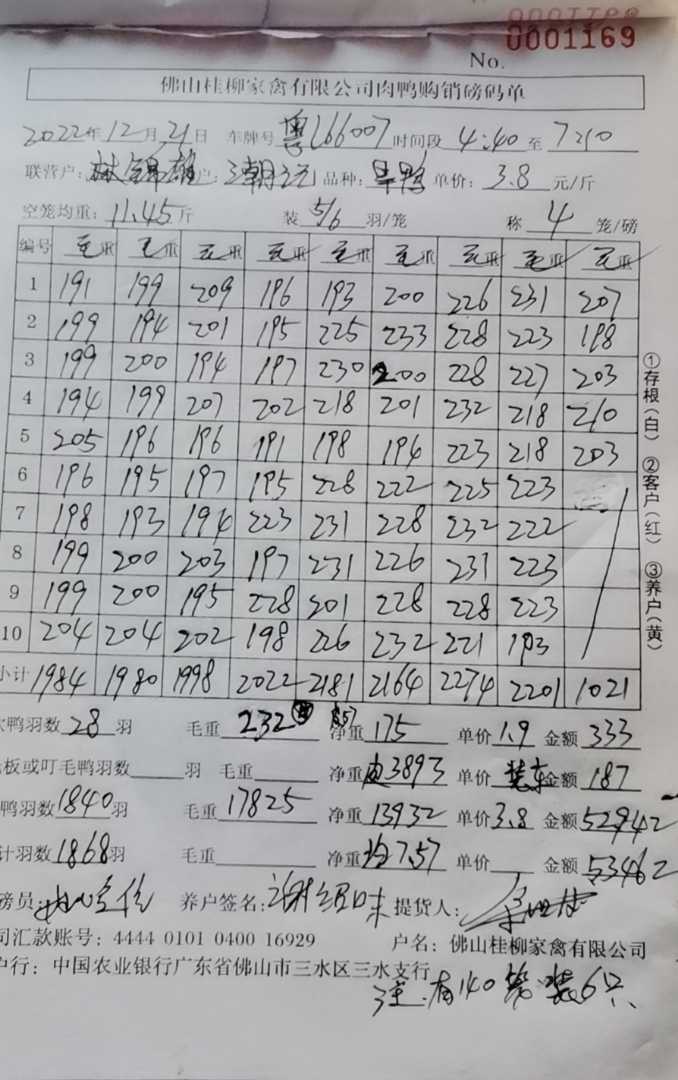 0001169
No.
佛山桂柳家禽有限公司肉鸭购销磅码单
2022年12月21日 车牌号 粤L66007 时间段 4:40 至 7:10
联营户: 林锦雄 户: 潮记 品种: 单价: 3.8 元/斤
空笼均重: 11.45 斤 装 5/6 羽/笼 称 4 笼/磅
编号 毛重 毛重 毛重 毛重 毛重 毛重 毛重 毛重 毛重
1 191 199 209 196 193 200 226 231 207
2 199 194 201 195 225 233 228 223 198
3 199 200 194 197 230 200 228 227 203
4 194 199 207 202 218 201 232 218 210
5 205 196 196 191 198 194 223 218 203
6 196 195 197 195 228 222 225 223
7 198 193 194 223 231 228 232 222
8 199 200 203 197 231 226 231 223
9 199 200 195 228 201 228 228 223
10 204 204 202 198 226 232 221 193
小计 1984 1980 1998 2022 2181 2164 2274 2201 1021
鸭羽数 28 羽 毛重 232 57 净重 175 单价 1.9 金额 333
板或叮毛鸭羽数 羽 毛重 净重 皮3893 单价 装车 金额 187
鸭羽数 1840 羽 毛重 17825 净重 13932 单价 3.8 金额 52942
计羽数 1868 羽 毛重 净重 均7.57 单价 金额 53462
磅员: 养户签名: 谢绍味 提货人:
司汇款账号: 4444 0101 0400 16929 户名: 佛山桂柳家禽有限公司
户行: 中国农业银行广东省佛山市三水区三水支行
注: 有140笼装6只
①存根(白) ②客户(红) ③养户(黄)